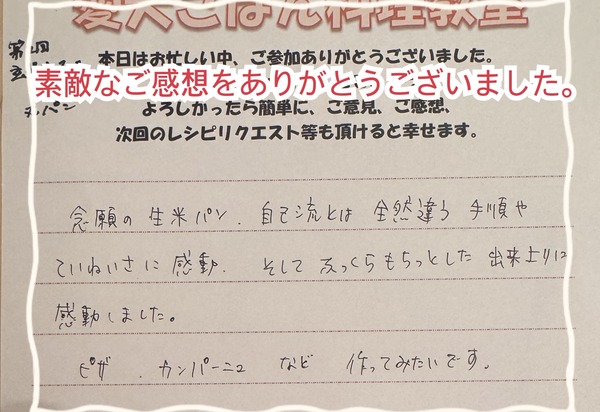 愛犬ごはん料理教室
本日はお忙しい中、ご参加ありがとうございました。
素敵なご感想をありがとうございました。
よろしかったら簡単に、ご意見、ご感想、
次回のレシピリクエスト等も頂けると幸せます。
念願の生米パン、自己流とは全然違う手順や
ていねいさに感動、そしてふっくらもちっとした出来上りに
感動しました。
ピザ、カンパーニュなど作ってみたいです。